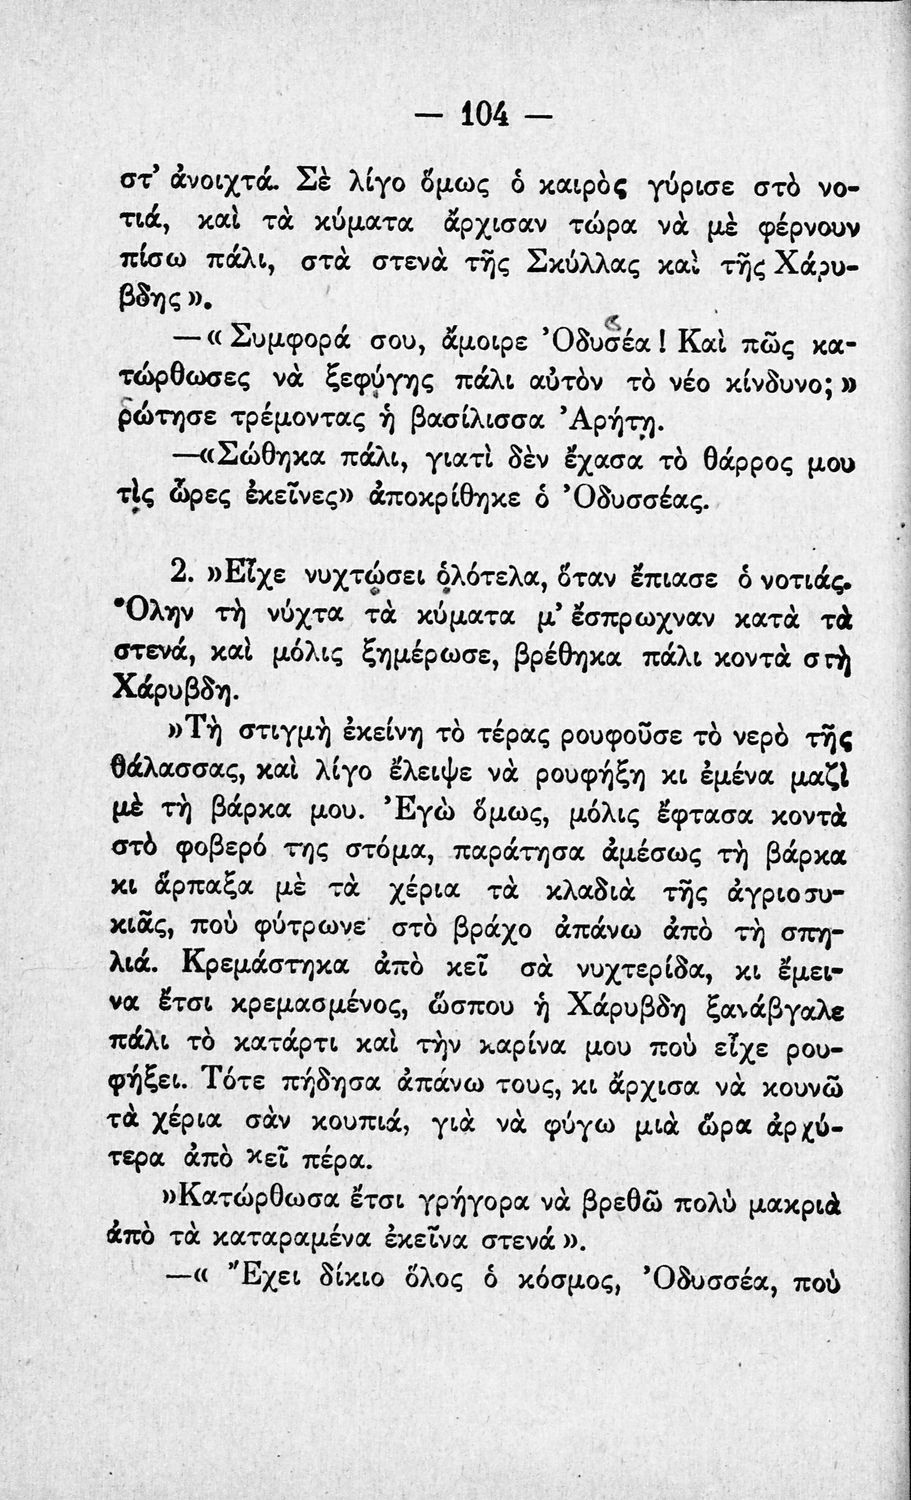 — 104 —
στ’ ἀνοιχτά. Σὲ λίγο ὅμως ὁ καιρὸς γύρισε στὸ νο-
τιά, καὶ τὰ κύματα ἄρχισαν τώρα νὰ μὲ φέρνουν
πίσω πάλι, στὰ στενὰ τῆς Σκύλλας καὶ τῆς Χάρυ-
βδης».
—«Συμφορά σου, ἄμοιρε Ὀδυσέα! Καὶ πῶς κα-
τώρθωσες νὰ ξεφύγης πάλι αὐτὸν τὸ νέο κίνδυνο;»
ρώτησε τρέμοντας ἡ βασίλισσα Ἀρήτη.
—«Σώθηκα πάλι, γιατὶ δὲν ἔχασα τὸ θάρρος μου
τὶς ὧρες ἐκεῖνες» ἀποκρίθηκε ὁ Ὀδυσσέας.
2. »Εἶχε νυχτώσει ὁλότελα, ὅταν ἔπιασε ὁ νοτιάς.
Ὅλην τὴ νύχτα τὰ κύματα μ’ ἔσπρωχναν κατὰ τὰ
στενά, καὶ μόλις ξημέρωσε, βρέθηκα πάλι κοντὰ στὴ
Χάρυβδη.
»Τὴ στιγμὴ ἐκείνη τὸ τέρας ρουφοῦσε τὸ νερὸ τῆς
θάλασσας, καὶ λίγο ἔλειψε νὰ ρουφήξη κι ἐμένα μαζὶ
μὲ τὴ βάρκα μου. Ἐγὼ ὅμως, μόλις ἔφτασα κοντὰ
στὸ φοβερό της στόμα, παράτησα ἀμέσως τὴ βάρκα
κι ἅρπαξα μὲ τὰ χέρια τὰ κλαδιὰ τῆς ἀγριοσυ-
κιᾶς, ποὺ φύτρωνε στὸ βράχο ἀπάνω ἀπὸ τὴ σπη-
λιά. Κρεμάστηκα ἀπὸ κεῖ σὰ νυχτερίδα, κι ἔμει-
να ἔτσι κρεμασμένος, ὥσπου ἡ Χάρυβδη ξανάβγαλε
πάλι τὸ κατάρτι καὶ τὴν καρίνα μου ποὺ εἶχε ρου-
φήξει. Τότε πήδησα ἀπάνω τους, κι ἄρχισα νὰ κουνῶ
τὰ χέρια σὰν κουπιά, γιὰ νὰ φύγω μιὰ ὥρα ἀρχύ-
τερα ἀπὸ κεῖ πέρα.
»Κατώρθωσα ἔτσι γρήγορα νὰ βρεθῶ πολὺ μακριὰ
ἀπὸ τὰ καταραμένα ἐκεῖνα στενά».
—« Ἔχει δίκιο ὅλος ὁ κόσμος, Ὀδυσσέα, ποὺ